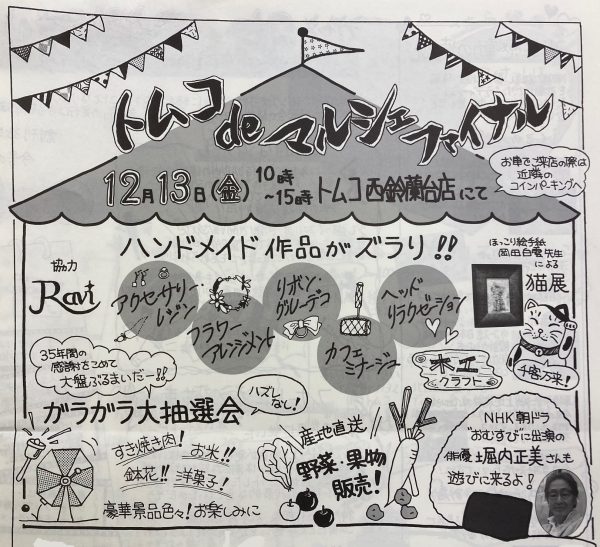 トムコ de マルシェ ファイナル
12月13日(金) 10時~15時 トムコ 西鈴蘭台店にて
お車でご来店の際は
近隣の
コインパーキングへ
ハンドメイド作品がズラリ!!
協力
Ravi
アクセサリー・
レジン
フラワー
アレンジメント
リボン・
グルーデコ
カフェ
ミナージュ
ヘッド
リラクゼーション
ほっこり絵手紙
岡田白雲先生
による
猫展
木工
クラフト
千客万来!
35年間の
感謝をこめて
大盤ぶるまいだー!!
ガラガラ大抽選会
ハズレ
なし!
すき焼き肉! お米!!
鉢花!! 洋菓子!
豪華景品色々!お楽しみに
産地直送
野菜・果物
販売!
NHK朝ドラ
"おむすび"に出演の
俳優 堀内正美さんも
遊びに来るよ!